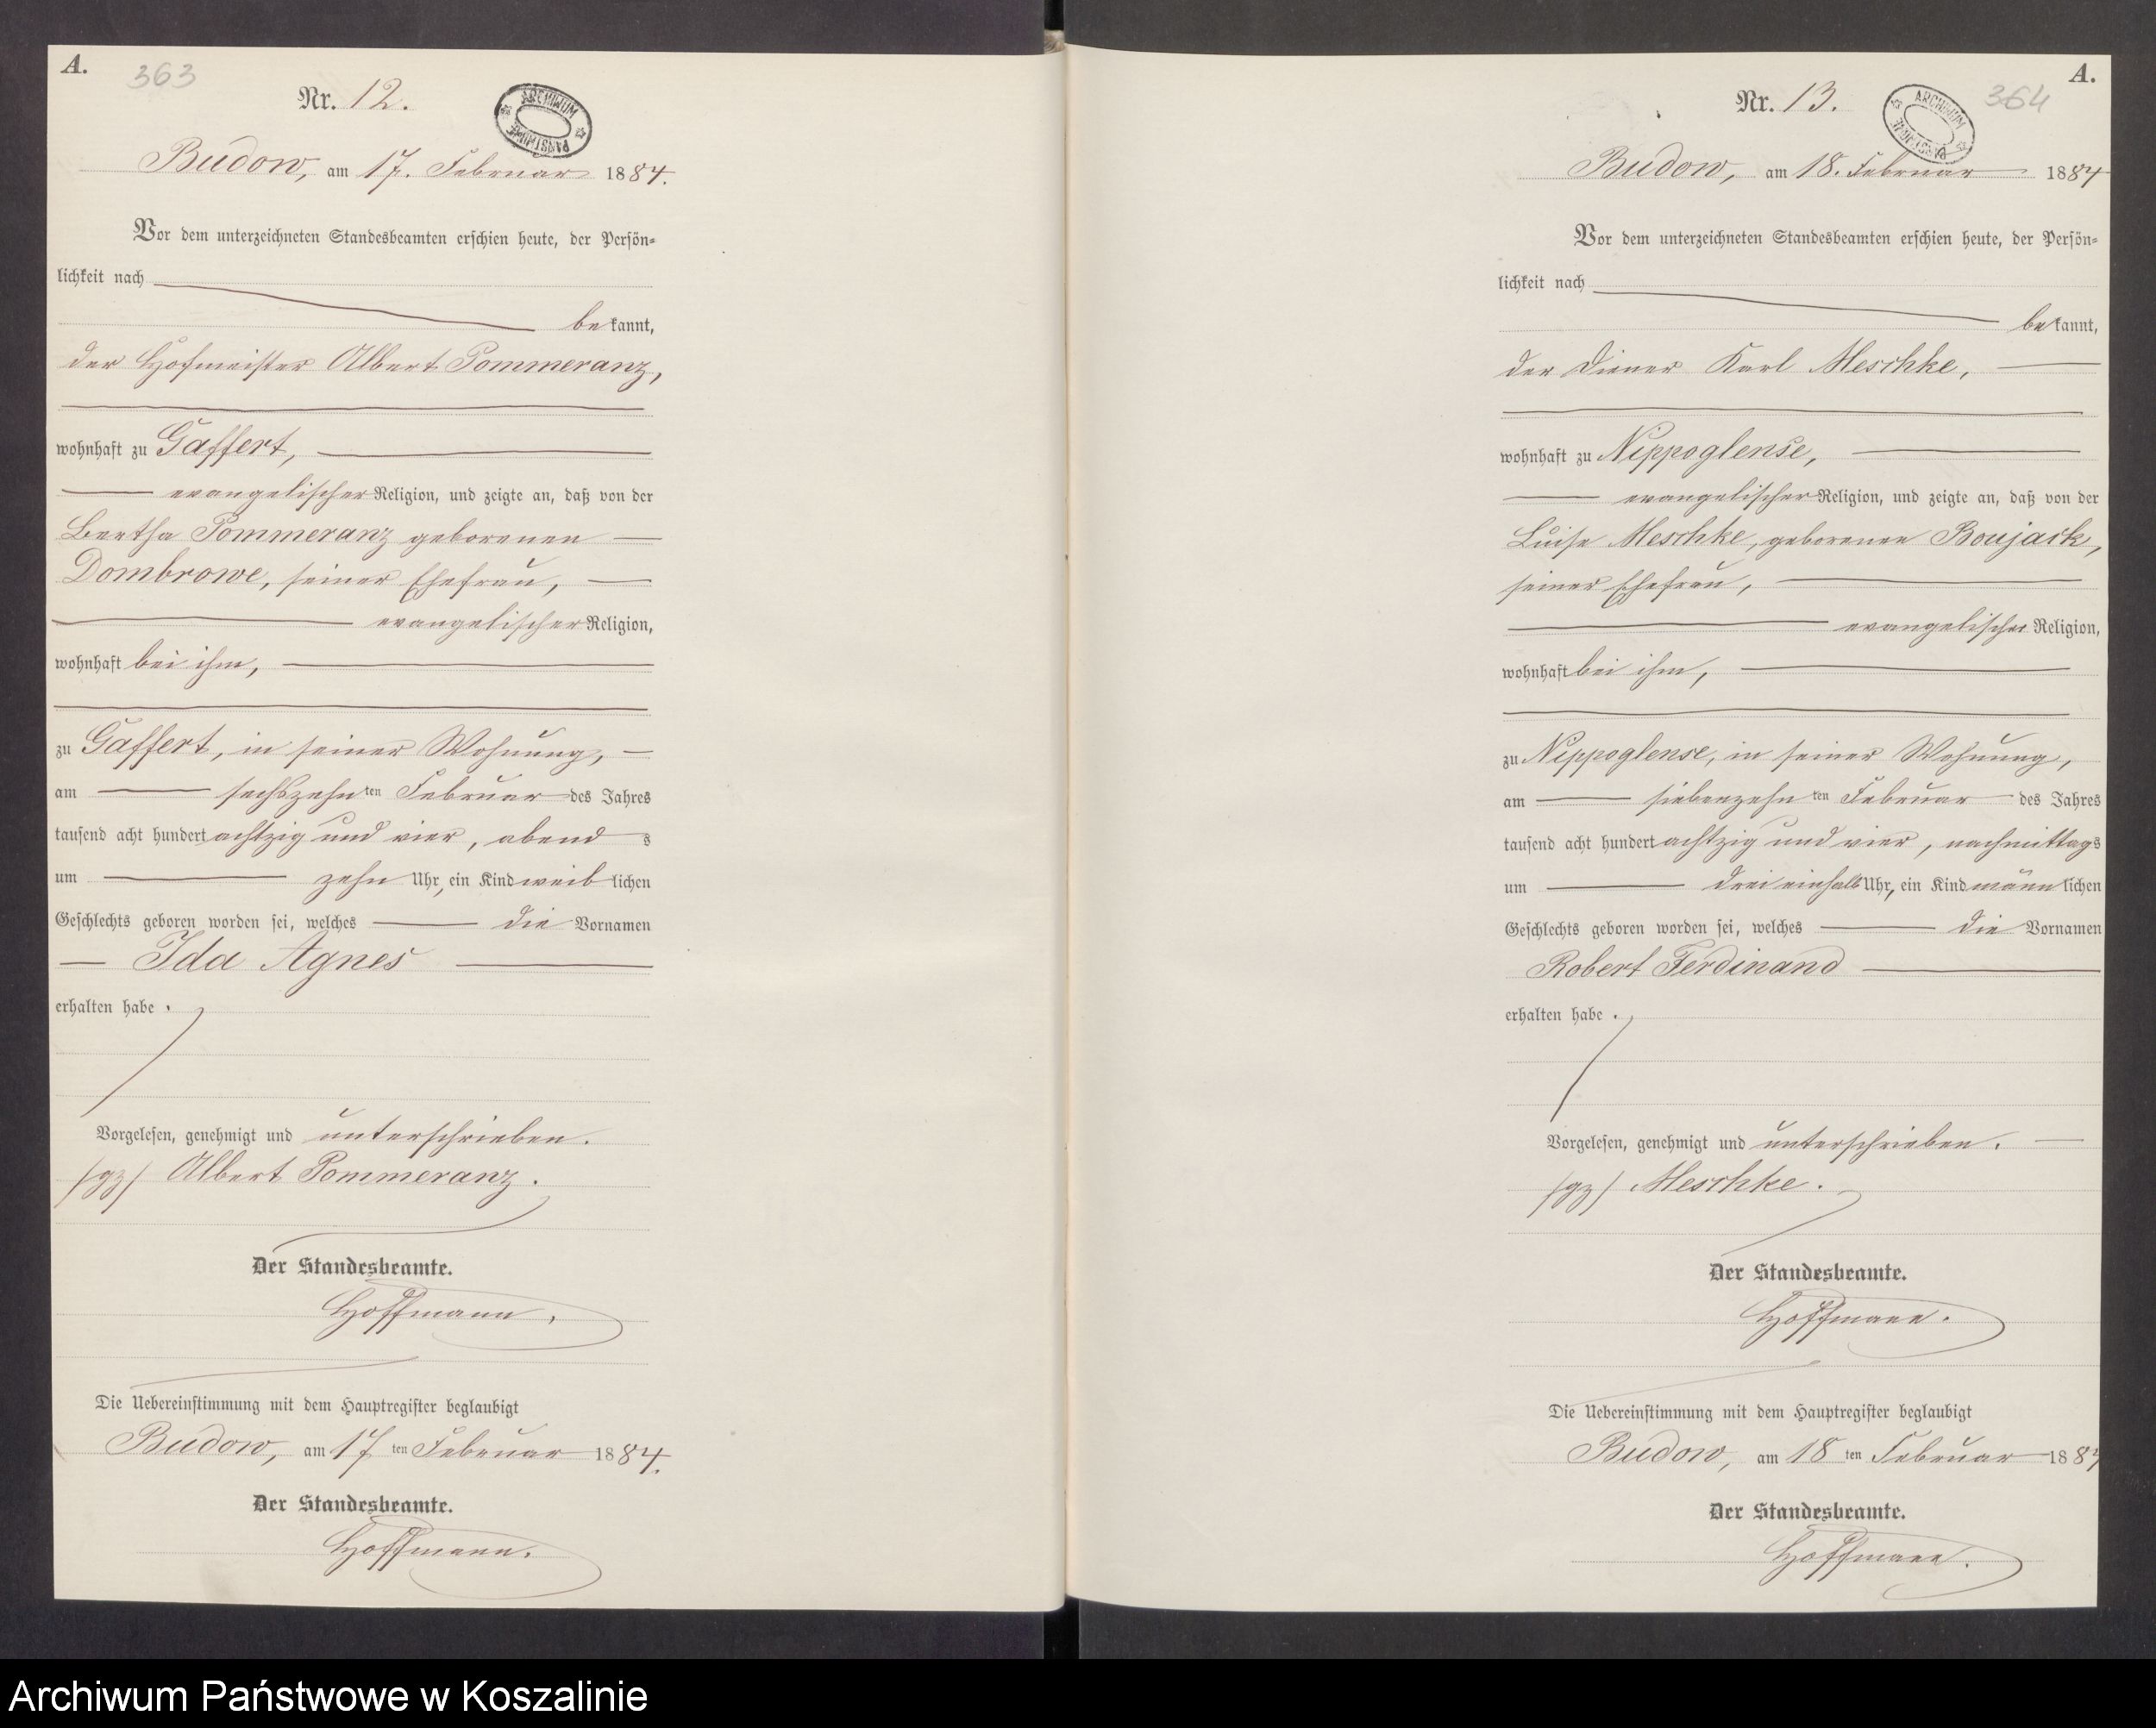 A.
363
Nr. 12.
ARCHIWUM PAŃSTWOWE
Budow, am 17. Februar 1884.
Vor dem unterzeichneten Standesbeamten erschien heute, der Persön-
lichkeit nach
bekannt,
der Hofmeister Albert Pommeranz,
wohnhaft zu Gaffert,
evangelischer Religion, und zeigte an, daß von der
Bertha Pommeranz geborenen
Dombrowe, seiner Ehefrau,
evangelischer Religion,
wohnhaft bei ihm,
zu Gaffert, in seiner Wohnung,
am sechszehnten Februar des Jahres
tausend acht hundert achtzig und vier, abends
um zehn Uhr, ein Kind weiblichen
Geschlechts geboren worden sei, welches die Vornamen
Ida Agnes
erhalten habe.
Vorgelesen, genehmigt und unterschrieben.
/gz/ Albert Pommeranz.
Der Standesbeamte.
Hoffmann.
Die Uebereinstimmung mit dem Hauptregister beglaubigt
Budow, am 17ten Februar 1884.
Der Standesbeamte.
Hoffmann.
A.
364
Nr. 13.
ARCHIWUM PAŃSTWOWE
Budow, am 18. Februar 1884
Vor dem unterzeichneten Standesbeamten erschien heute, der Persön-
lichkeit nach
bekannt,
der Diener Karl Meschke,
wohnhaft zu Nippoglense,
evangelischer Religion, und zeigte an, daß von der
Luise Meschke, geborenen Boujack,
seiner Ehefrau,
evangelischer Religion,
wohnhaft bei ihm,
zu Nippoglense, in seiner Wohnung,
am siebenzehnten Februar des Jahres
tausend acht hundert achtzig und vier, nachmittags
um drei einhalb Uhr, ein Kind männlichen
Geschlechts geboren worden sei, welches die Vornamen
Robert Ferdinand
erhalten habe.
Vorgelesen, genehmigt und unterschrieben.
/gz/ Meschke.
Der Standesbeamte.
Hoffmann.
Die Uebereinstimmung mit dem Hauptregister beglaubigt
Budow, am 18ten Februar 1884
Der Standesbeamte.
Hoffmann.
Archiwum Państwowe w Koszalinie